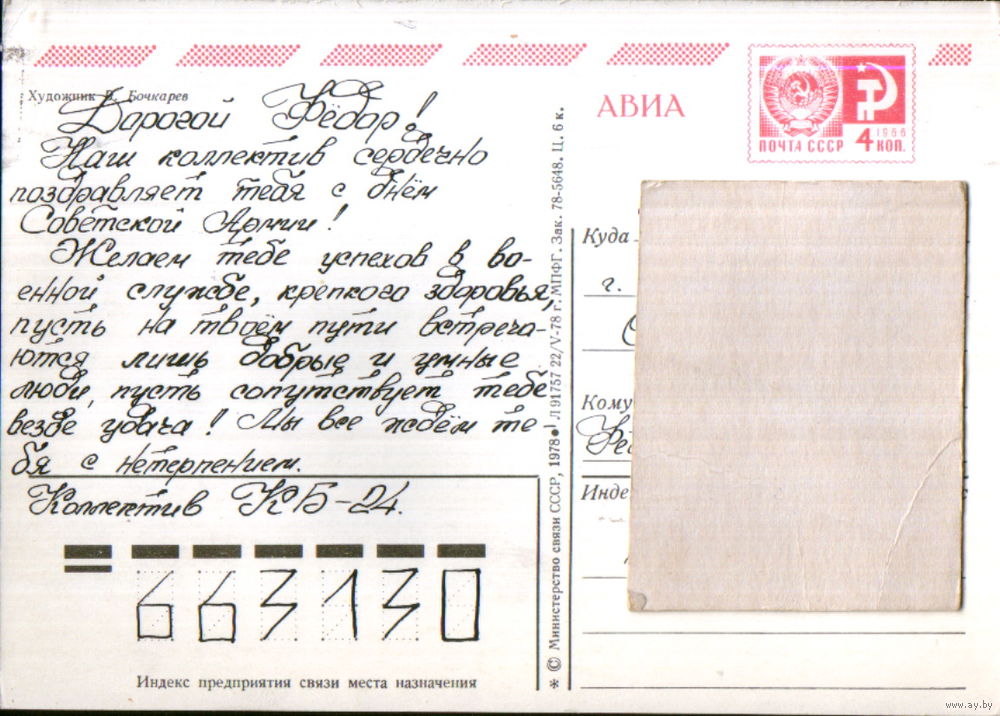 Художник В. Бочкарев
Дорогой Фёдор!
Наш коллектив сердечно
поздравляет тебя с днём
Советской Армии!
Желаем тебе успехов в во-
енной службе, крепкого здоровья,
пусть на твоём пути встреча-
ются лишь добрые и умные
люди, пусть сопутствует тебе
везде удача! Мы все ждём те-
бя с нетерпением.
Коллектив КБ-24.
663130
Индекс предприятия связи места назначения
* © Министерство связи СССР, 1978 Л 91757 22/V-78 г. МПФГ. Зак. 78-5648. Ц. 6 к.
АВИА
1966
ПОЧТА СССР 4 КОП.
Куда
г.
Кому
Инде
www.ay.by